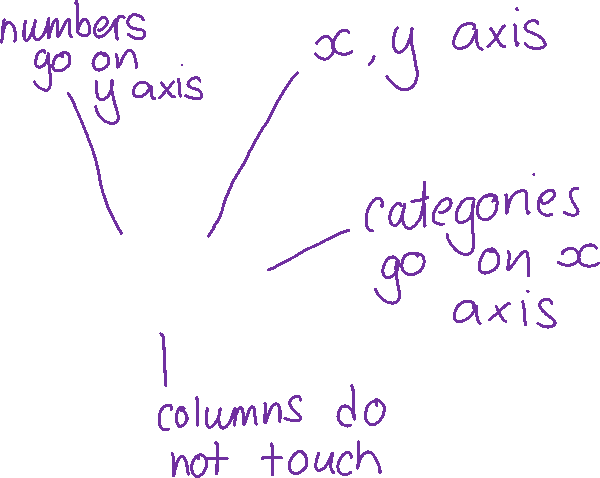 numbers
go on
y axis
x, y axis
categories
go on x
axis
columns do
not touch